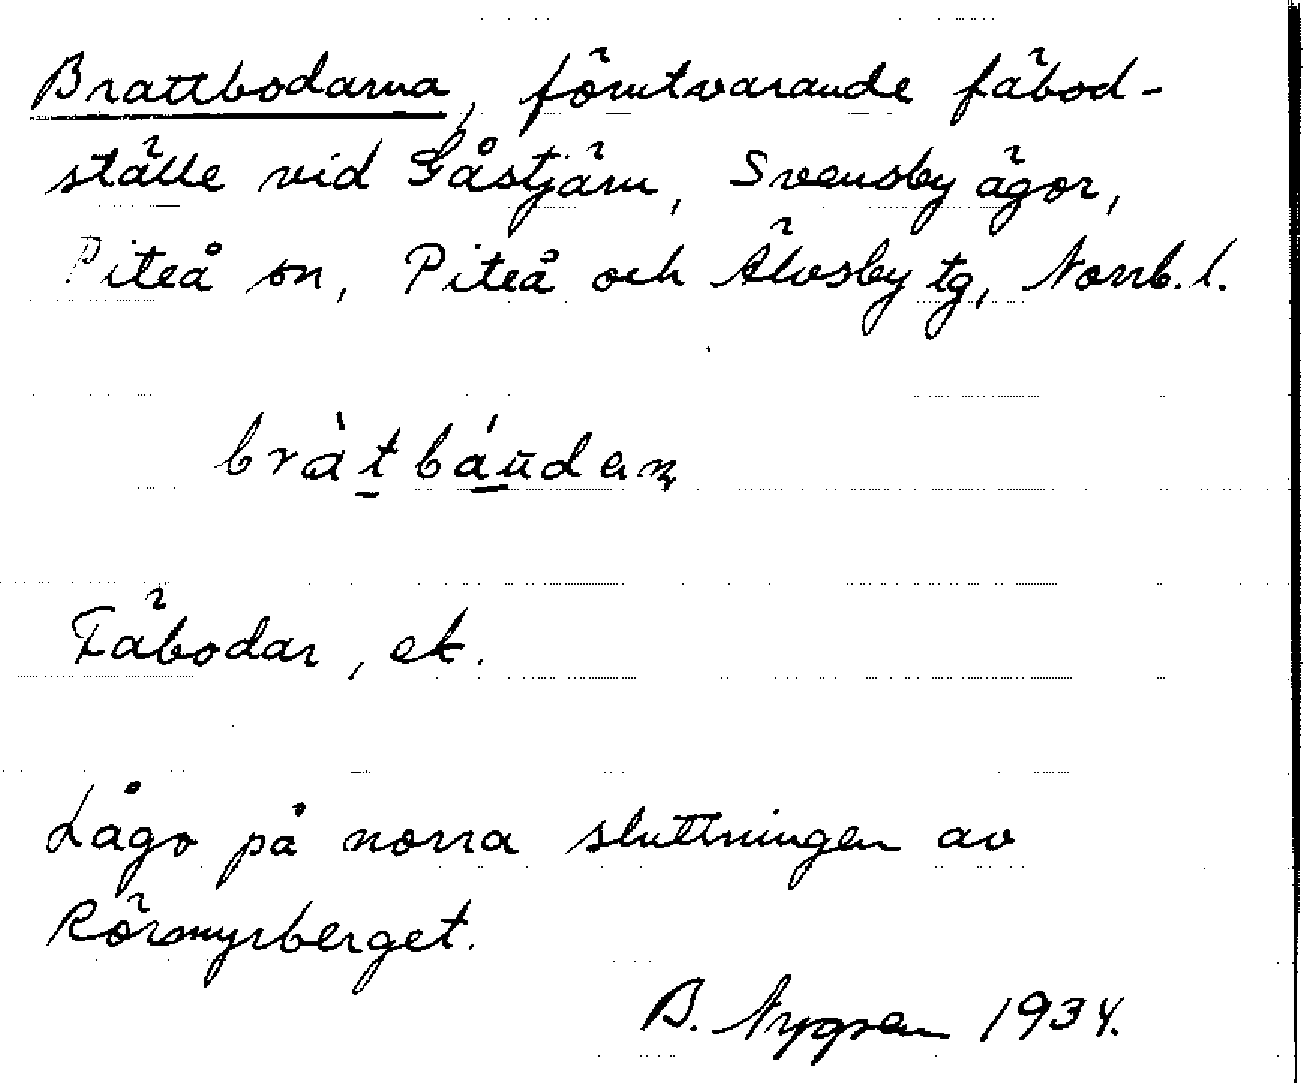 Brattbodarna, förutvarande fäbod-
ställe vid Gåstjärn, Svensby ägor,
Piteå sn, Piteå och Älvsby tg, Norrb. l.
bràtbáudaɳ
Fäbodar, ek.
Lågo på norra sluttningen av
Rörmyrberget.
B. Nygren 1934.